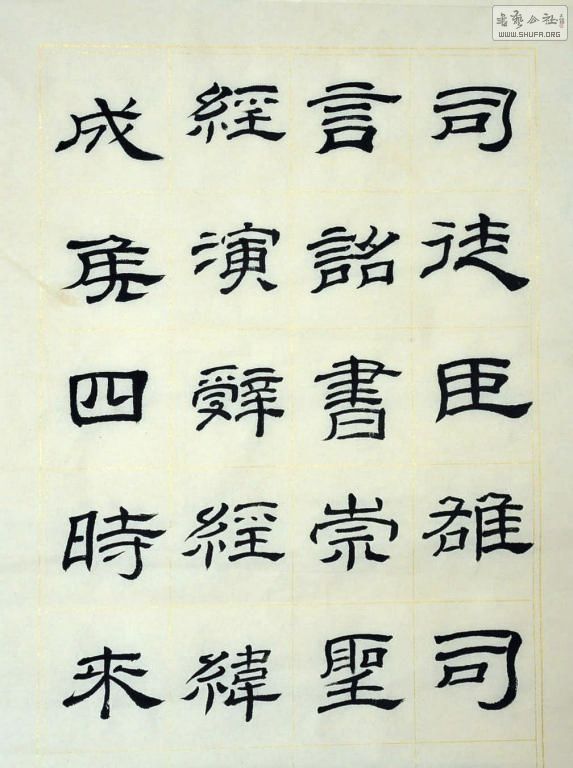 司徒臣雄司
言詔書崇聖
經演辭經緯
成侯四時來
書藝公社
WWW.SHUFA.ORG